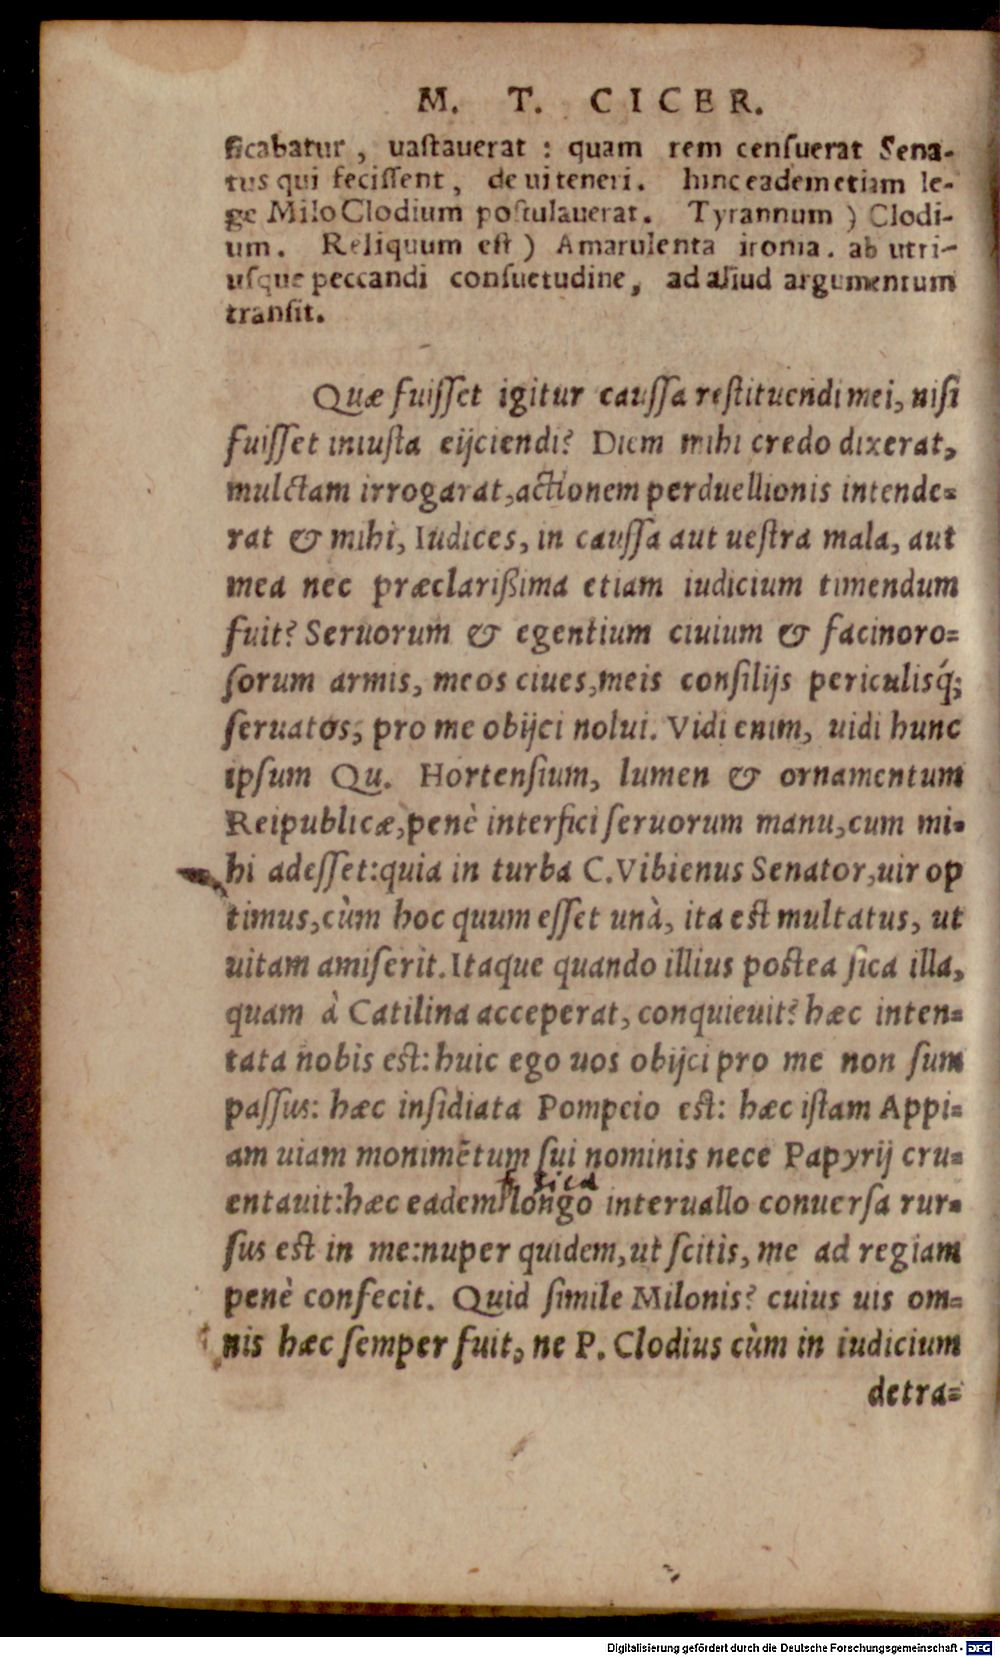 M. T. CICER.
ficabatur, uastauerat: quam rem censuerat Sena-
tus qui fecissent, de ui teneri. hinc eadem etiam le-
ge Milo Clodium postulauerat. Tyrannum) Clodi-
um. Reliquum est) Amarulenta ironia. ab utri-
usque peccandi consuetudine, ad aliud argumentum
transit.
Quæ fuisset igitur caussa restituendi mei, nisi
fuisset iniusta eijciendi? Diem mihi credo dixerat,
mulctam irrogarat, actionem perduellionis intende=
rat & mihi, Iudices, in caussa aut uestra mala, aut
mea nec præclarißima etiam iudicium timendum
fuit? Seruorum & egentium ciuium & facinoro=
sorum armis, meos ciues, meis consilijs periculisq́;
seruatos, pro me obijci nolui. Vidi enim, uidi hunc
ipsum Qu. Hortensium, lumen & ornamentum
Reipublicæ, penè interfici seruorum manu, cum mi=
hi adesset: quia in turba C. Vibienus Senator, uir op
timus, cùm hoc quum esset unà, ita est multatus, ut
uitam amiserit. Itaque quando illius postea sica illa,
quam à Catilina acceperat, conquieuit? hæc inten=
tata nobis est: huic ego uos obijci pro me non sum
passus: hæc insidiata Pompeio est: hæc istam Appi=
am uiam monimẽtum sui nominis nece Papyrij cru=
sica
entauit: hæc eadem longo interuallo conuersa rur=
sus est in me: nuper quidem, ut scitis, me ad regiam
penè confecit. Quid simile Milonis? cuius uis om=
nis hæc semper fuit, ne P. Clodius cùm in iudicium
detra=
Digitalisierung gefördert durch die Deutsche Forschungsgemeinschaft - DFG